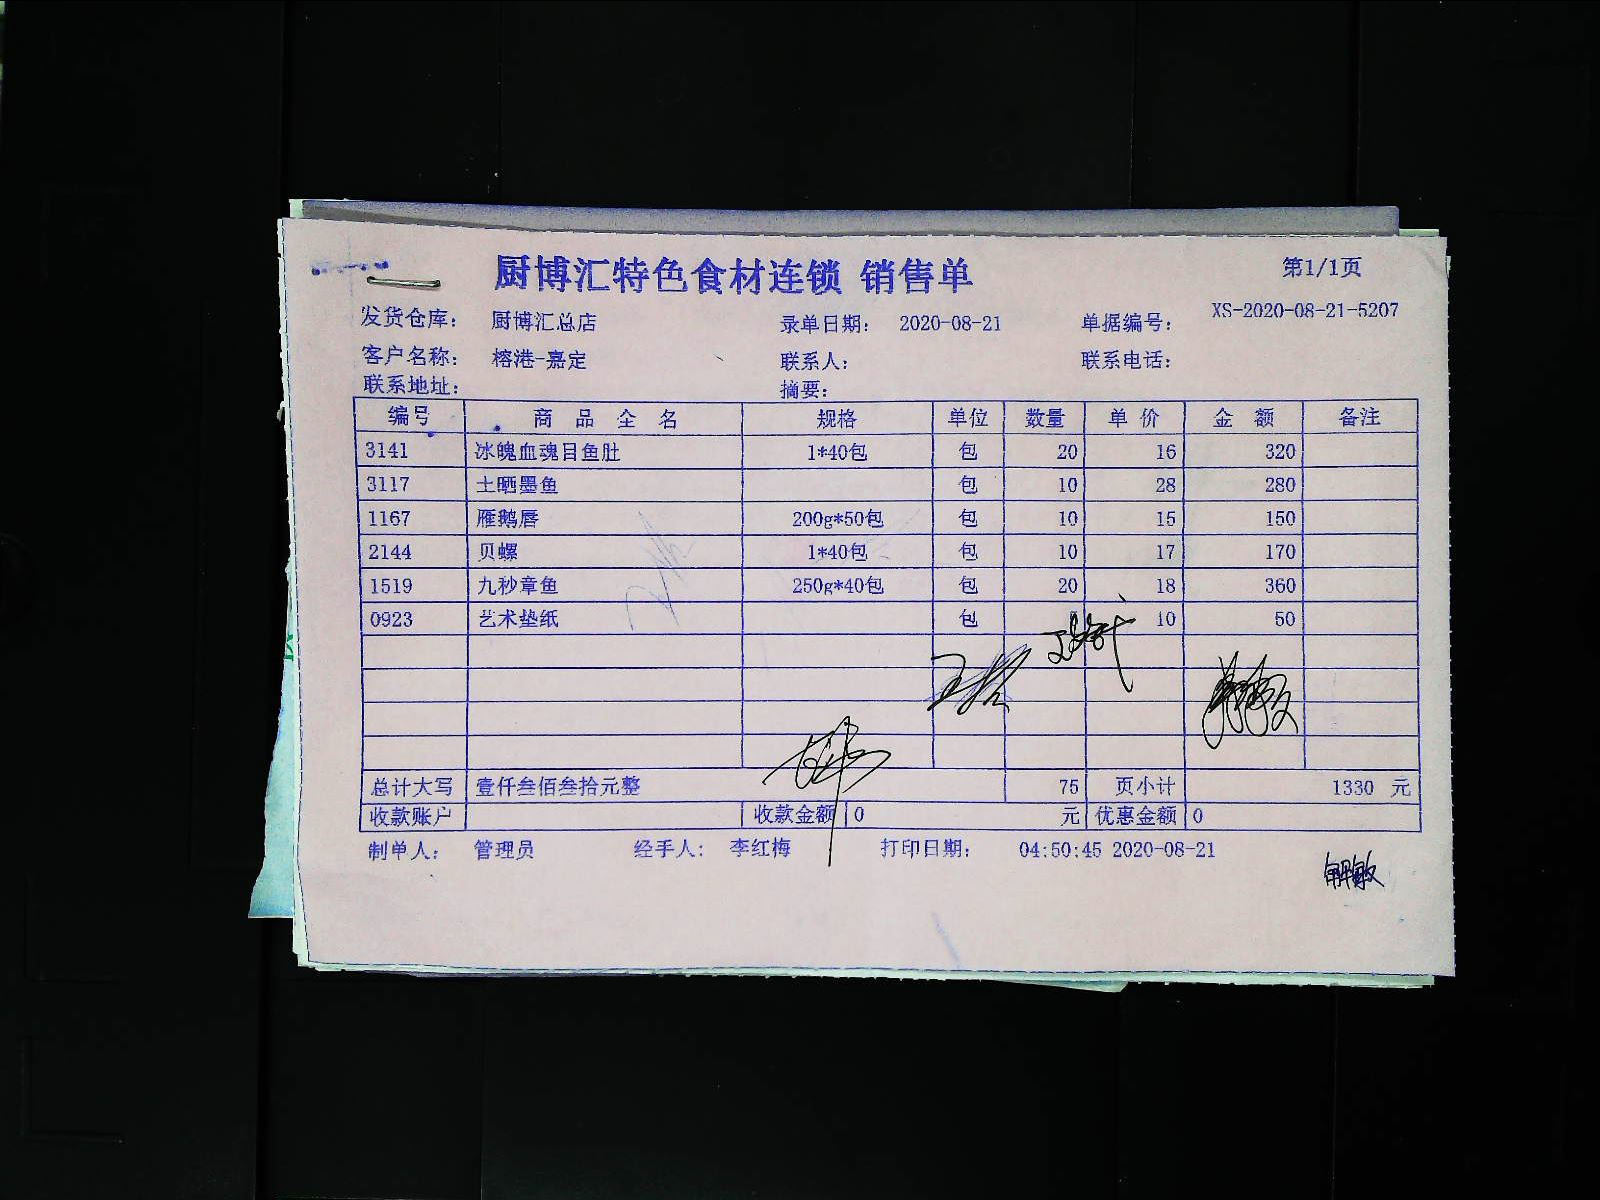 厨博汇特色食材连锁 销售单 第1/1页
发货仓库: 厨博汇总店 录单日期: 2020-08-21 单据编号: XS-2020-08-21-5207
客户名称: 榕港-嘉定 联系人: 联系电话:
联系地址: 摘要:
编号 商品全名 规格 单位 数量 单价 金额 备注
3141 冰魄血魂目鱼肚 1*40包 包 20 16 320
3117 土晒墨鱼 包 10 28 280
1167 雁鹅唇 200g*50包 包 10 15 150
2144 贝螺 1*40包 包 10 17 170
1519 九秒章鱼 250g*40包 包 20 18 360
0923 艺术垫纸 包 10 50
总计大写 壹仟叁佰叁拾元整 75 页小计 1330 元
收款账户 收款金额 0 元 优惠金额 0
制单人: 管理员 经手人: 李红梅 打印日期: 04:50:45 2020-08-21